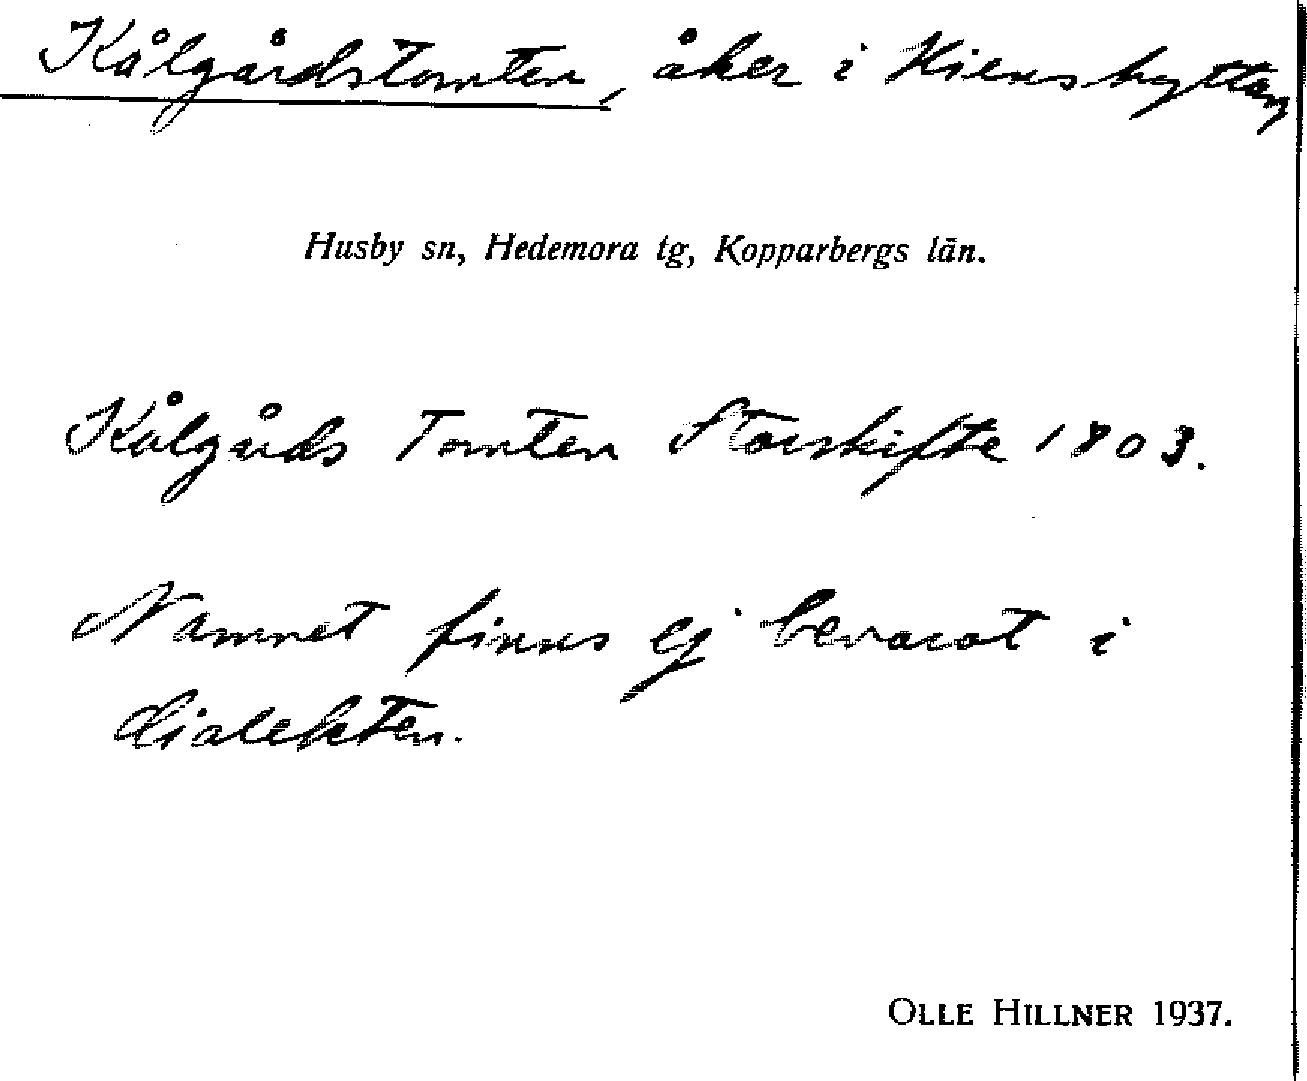 Kålgårdstomten, åker i Hienshyttan
Husby sn, Hedemora tg, Kopparbergs län.
Kålgårds Tomten Storskifte 1803.
Namnet finns ej bevarat i
dialekten.
OLLE HILLNER 1937.